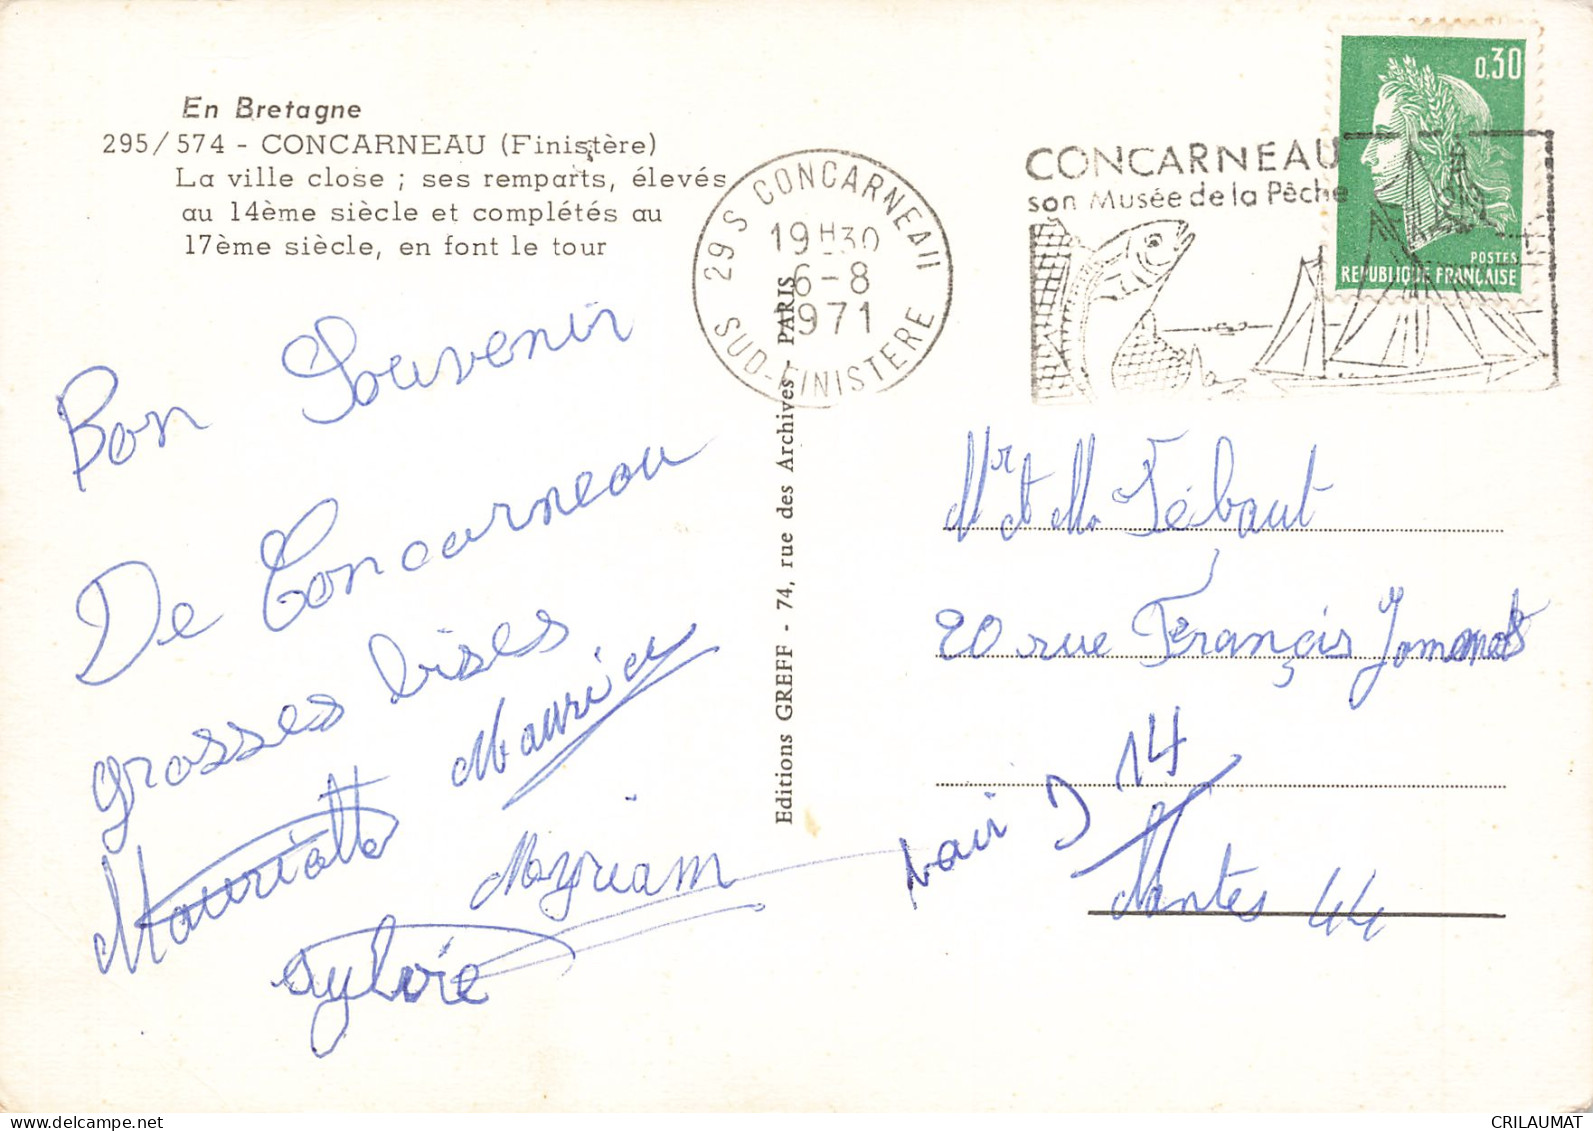 En Bretagne
295/574 - CONCARNEAU (Finistère)
La ville close ; ses remparts, élevés
au 14ème siècle et complétés au
17ème siècle, en font le tour
29 S CONCARNEAU
19H30
6-8
1971
SUD-FINISTERE
CONCARNEAU
son Musée de la Pêche
0,30
POSTES
REPUBLIQUE FRANÇAISE
Bon Souvenir
De Concarneau
grosses bises
Mauricette Maurice
Myriam
Sylvie
Editions GREFF - 74, rue des Archives - PARIS
Mr et Me Tébaut
20 rue François
14
Nantes 44
CRILAUMAT